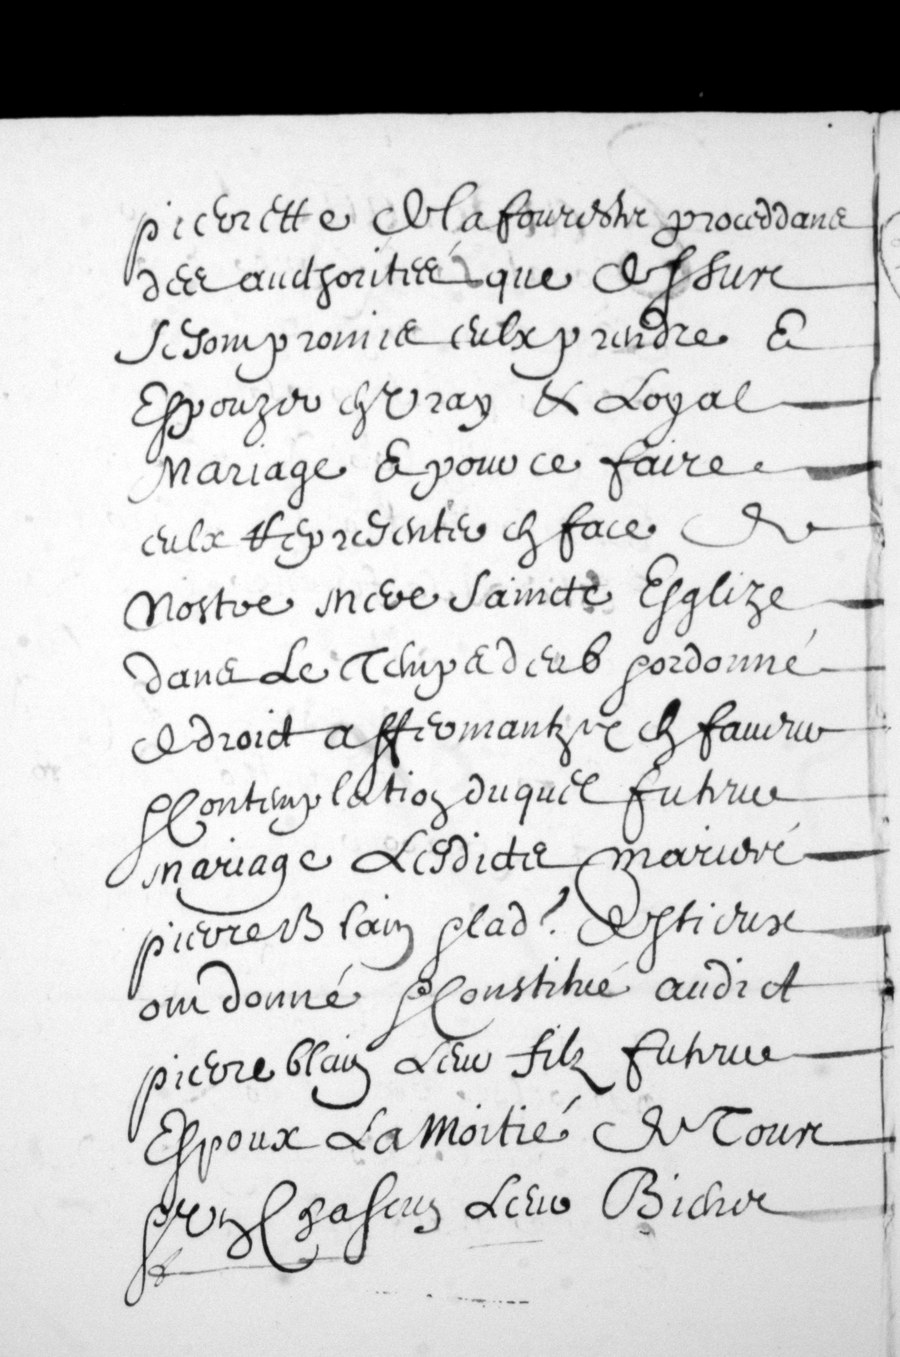 pierrette de la fourestie proceddans
des authoritées que dessure
se sont promis eulx prendre &
Espouzer en vray & Loyal
Mariage & pour ce faire
eulx Representer en face de
Nostre mere Saincte Esglize
dans Le Temps deub & ordonné
de droict affirmantz et en faveur
& Contemplation duquel futur
mariage Lesdicts mariere
pierre Blain & lad.
ont donné & Constitué audict
pierre blain Leur filz futur
Espoux La Moitié de Tous
& un Chascun Leur Biens